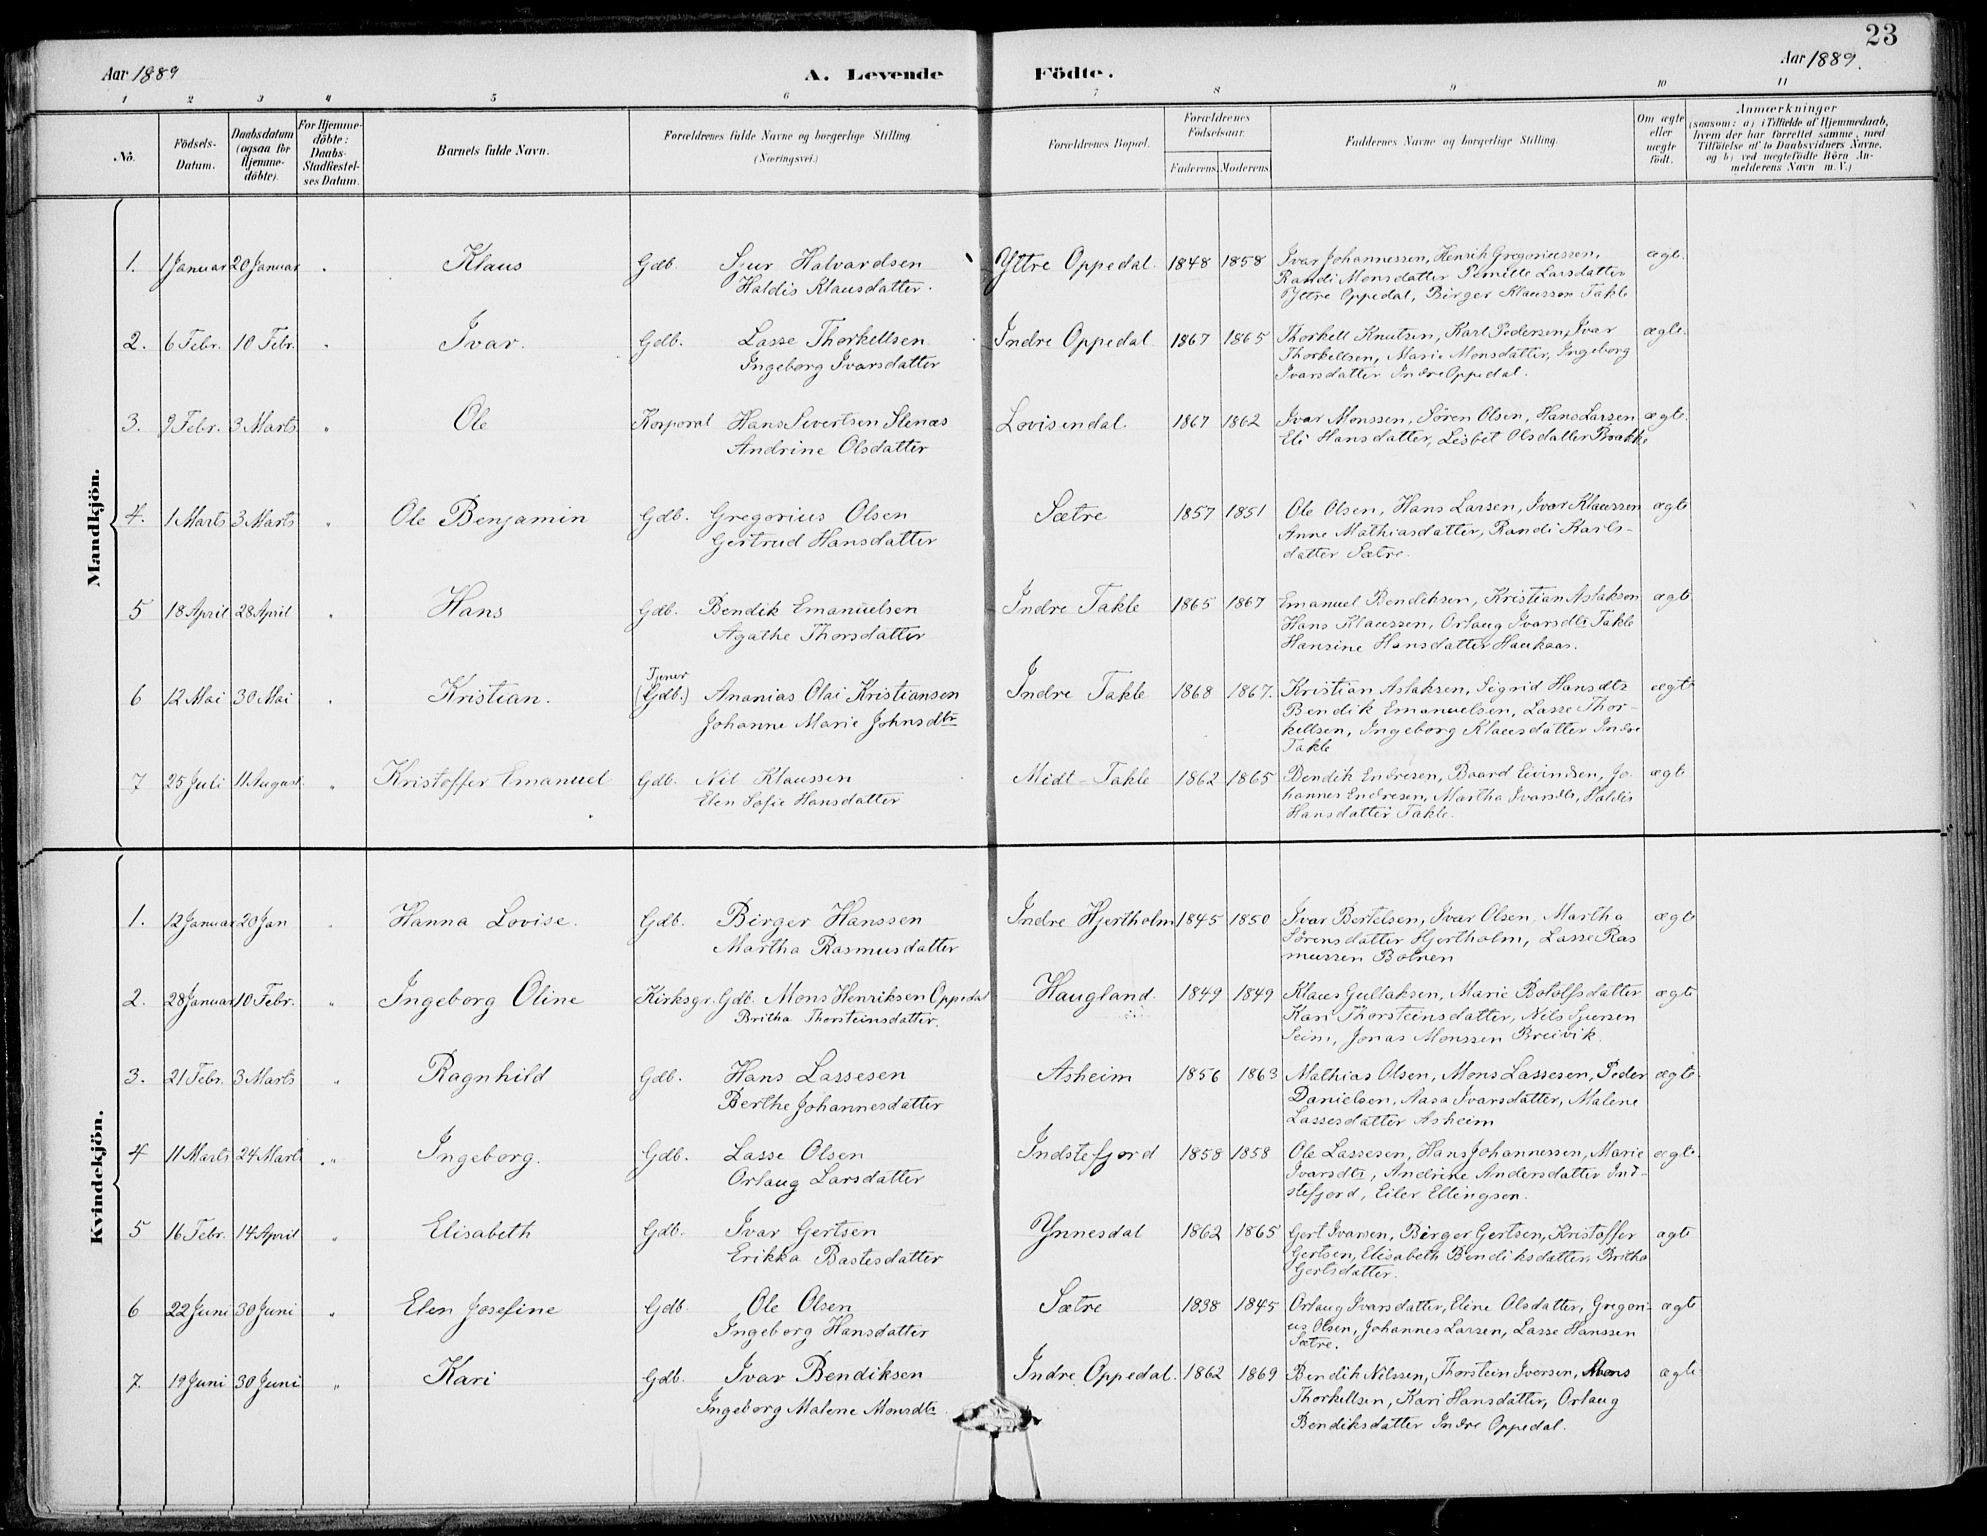 23
Aar 1889
A. Levende Födte.
Aar 1889.
1 2 3 4 5 6 7 8 9 10 11
No. Födsels-Datum. Daabsdatum (ogsaa for Hjemme-döbte). For Hjemme-döbte: Daabs-Stadfæstel-ses Datum. Barnets fulde Navn. Forældrenes fulde Navne og borgerlige Stilling. (Næringsvei.) Forældrenes Bopæl. Forældrenes Födselsaar. Faderens. Moderens. Faddernes Navne og borgerlige Stilling. Om ægte eller uægte födt. Anmærkninger (saasom: a) i Tilfælde af Hjemmedaab, hvem der har forrettet samme, med Tilföielse af to Daabsvidners Navne, og b) ved uægtefödte Börn An-melderens Navn m. V.)
Mandkjön.
1. 1 Januar 20 Januar " Klaus Gdb. Sjur Halvardsen Yttre Oppedal. 1848 1858 Ivar Johannessen, Henrik Gregoriussen, ægt.
Haldis Klausdatter. Randi Monsdatter Pernille Larsdatter
Yttre Oppedal, Birger Klaussen Takle
2. 6 Febr. 10 Febr. " Ivar. Gdb. Lasse Thorkellsen Indre Oppedal 1867 1865 Thorkell Knutsen, Karl Pedersen, Ivar ægte.
Ingeborg Ivarsdatter Thorkellsen, Marie Monsdatter, Ingeborg
Ivarsdatter Indre Oppedal.
3. 9 Febr. 3 Marts " Ole Korporal Hans Sivertsen Stenæs Lovisendal 1867 1862 Ivar Monssen, Søren Olsen, Hans Larsen ægte.
Andrine Olsdatter Eli Hansdatter, Lisbet Olsdatter Brække
4. 1 Marts 3 Marts " Ole Benjamin Gdb. Gregorius Olsen Sætre 1857 1851 Ole Olsen, Hans Larsen, Ivar Klaussen ægte
Gertrud Hansdatter Anne Mathiasdatter, Randi Karls-
datter Sætre.
5 18 April 28 April " Hans Gdb. Bendik Emanuelsen Indre Takle 1865 1867 Emanuel Bendiksen, Kristian Aslaksen ægte
Agathe Thorsdatter Hans Klaussen, Orlaug Ivarsdtr Takle
Hansine Hansdatter Haukaas.
6 12 Mai 30 Mai " Kristian. Tjener (Gdb.) Ananias Olai Kristiansen Indre Takle 1868 1867. Kristian Aslaksen, Sigrid Hansdtr ægte
Johanne Marie Johnsdtr Bendik Emanuelsen, Lasse Thor-
kellsen, Ingeborg Klausdatter Indre
Takle
7 25 Juli 11 August " Kristoffer Emanuel Gdb. Nil Klaussen Midt-Takle 1862 1865 Bendik Endresen, Baard Eivindsen, Jo- ægte
Elen Sofie Hansdatter hannes Endresen, Martha Ivarsdtr, Haldis
Hansdatter Takle.
Kvindekjön.
1. 12 Januar 20 Jan " Hanna Lovise. Gdb. Birger Hanssen Indre Hjertholm 1845 1850 Ivar Bertelsen, Ivar Olsen, Martha ægte
Martha Rasmusdatter Sørensdatter Hjertholm, Lasse Ras
mussen Botnen
2. 28 Januar 10 Febr. " Ingeborg Oline Kirksgr. Gdb. Mons Henriksen Oppedal Haugland. 1849 1849 Klaus Gullaksen, Marie Botolfsdatter ægte
Britha Thorsteinsdatter. Kari Thorsteinsdatter, Nils Sjursen
Seim, Jonas Monssen Breivik.
3. 21 Febr. 3 Marts " Ragnhild Gdb. Hans Lassesen Asheim 1856 1863 Mathias Olsen, Mons Lassesen, Peder ægte.
Berthe Johannesdatter Danielsen, Aasa Ivarsdatter, Malene
Lassesdatter Asheim
4 11 Marts 24 Marts " Ingeborg. Gdb. Lasse Olsen Indstefjord 1858 1858 Ole Lassesen, Hans Johannessen, Marie ægte
Orlaug Larsdatter Ivarsdtr, Andrine Andersdatter Ind-
stefjord, Eiler Ellingsen.
5 16 Febr. 14 April " Elisabeth Gdb. Ivar Gertsen Ynnesdal 1862 1865 Gert Ivarsen, Birger Gertsen, Kristoffer ægte
Erikka Bastesdatter Gertsen, Elisabeth Bendiksdatter, Britha
Gertsdatter.
6 22 Juni 30 Juni " Elen Josefine Gdb. Ole Olsen Sætre 1838 1845 Orlaug Ivarsdatter, Eline Olsdatter, Gregori- ægte
Ingeborg Hansdatter us Olsen, Johannes Larsen, Lasse Hanssen
Sætre.
7. 19 Juni 30 Juni " Kari Gdb. Ivar Bendiksen Indre Oppedal. 1862 1869 Bendik Nilssen, Thorstein Iversen, Mons ægte
Ingeborg Malene Monsdtr. Thorkellsen, Kari Hansdatter, Orlaug
Bendiksdatter Indre Oppedal.